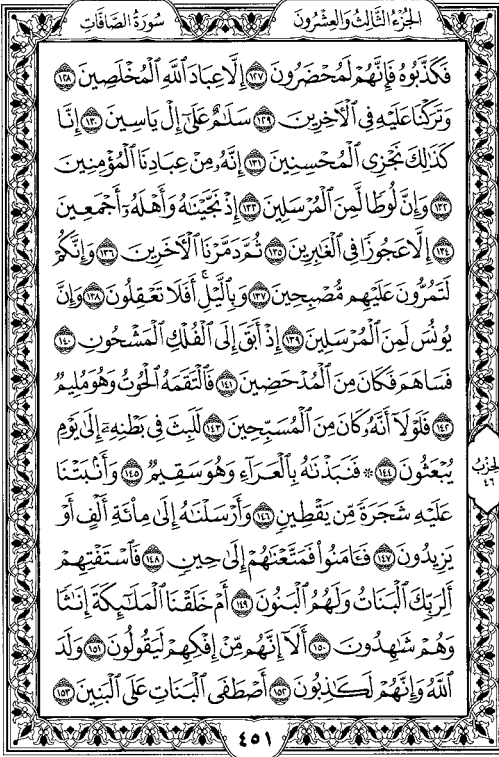 سُورَةُ الصَّافَّاتِ
الجُزْءُ الثَّالِثُ وَالعِشْرُونَ
فَكَذَّبُوهُ فَإِنَّهُمْ لَمُحْضَرُونَ ١٢٧ إِلَّا عِبَادَ ٱللَّهِ ٱلْمُخْلَصِينَ ١٢٨
وَتَرَكْنَا عَلَيْهِ فِي ٱلْأَخِرِينَ ١٢٩ سَلَٰمٌ عَلَىٰٓ إِلْ يَاسِينَ ١٣٠ إِنَّا
كَذَٰلِكَ نَجْزِي ٱلْمُحْسِنِينَ ١٣١ إِنَّهُۥ مِنْ عِبَادِنَا ٱلْمُؤْمِنِينَ
١٣٢ وَإِنَّ لُوطًا لَّمِنَ ٱلْمُرْسَلِينَ ١٣٣ إِذْ نَجَّيْنَٰهُ وَأَهْلَهُۥٓ أَجْمَعِينَ
١٣٤ إِلَّا عَجُوزًا فِي ٱلْغَٰبِرِينَ ١٣٥ ثُمَّ دَمَّرْنَا ٱلْأَخَرِينَ ١٣٦ وَإِنَّكُمْ
لَتَمُرُّونَ عَلَيْهِم مُّصْبِحِينَ ١٣٧ وَبِٱلَّيْلِۗ أَفَلَا تَعْقِلُونَ ١٣٨ وَإِنَّ
يُونُسَ لَمِنَ ٱلْمُرْسَلِينَ ١٣٩ إِذْ أَبَقَ إِلَى ٱلْفُلْكِ ٱلْمَشْحُونِ ١٤٠
فَسَاهَمَ فَكَانَ مِنَ ٱلْمُدْحَضِينَ ١٤١ فَٱلْتَقَمَهُ ٱلْحُوتُ وَهُوَ مُلِيمٌ
١٤٢ فَلَوْلَآ أَنَّهُۥ كَانَ مِنَ ٱلْمُسَبِّحِينَ ١٤٣ لَلَبِثَ فِي بَطْنِهِۦٓ إِلَىٰ يَوْمِ
يُبْعَثُونَ ١٤٤ ۞ فَنَبَذْنَٰهُ بِٱلْعَرَآءِ وَهُوَ سَقِيمٌ ١٤٥ وَأَنۢبَتْنَا
عَلَيْهِ شَجَرَةً مِّن يَقْطِينٍ ١٤٦ وَأَرْسَلْنَٰهُ إِلَىٰ مِا۟ئَةِ أَلْفٍ أَوْ
يَزِيدُونَ ١٤٧ فَـَٔامَنُوا۟ فَمَتَّعْنَٰهُمْ إِلَىٰ حِينٍ ١٤٨ فَٱسْتَفْتِهِمْ
أَلِرَبِّكَ ٱلْبَنَاتُ وَلَهُمُ ٱلْبَنُونَ ١٤٩ أَمْ خَلَقْنَا ٱلْمَلَٰٓئِكَةَ إِنَٰثًا
وَهُمْ شَٰهِدُونَ ١٥٠ أَلَآ إِنَّهُم مِّنْ إِفْكِهِمْ لَيَقُولُونَ ١٥١ وَلَدَ
ٱللَّهُ وَإِنَّهُمْ لَكَٰذِبُونَ ١٥٢ أَصْطَفَى ٱلْبَنَاتِ عَلَى ٱلْبَنِينَ ١٥٣
٤٥١
لحِزْبُ
٤٦